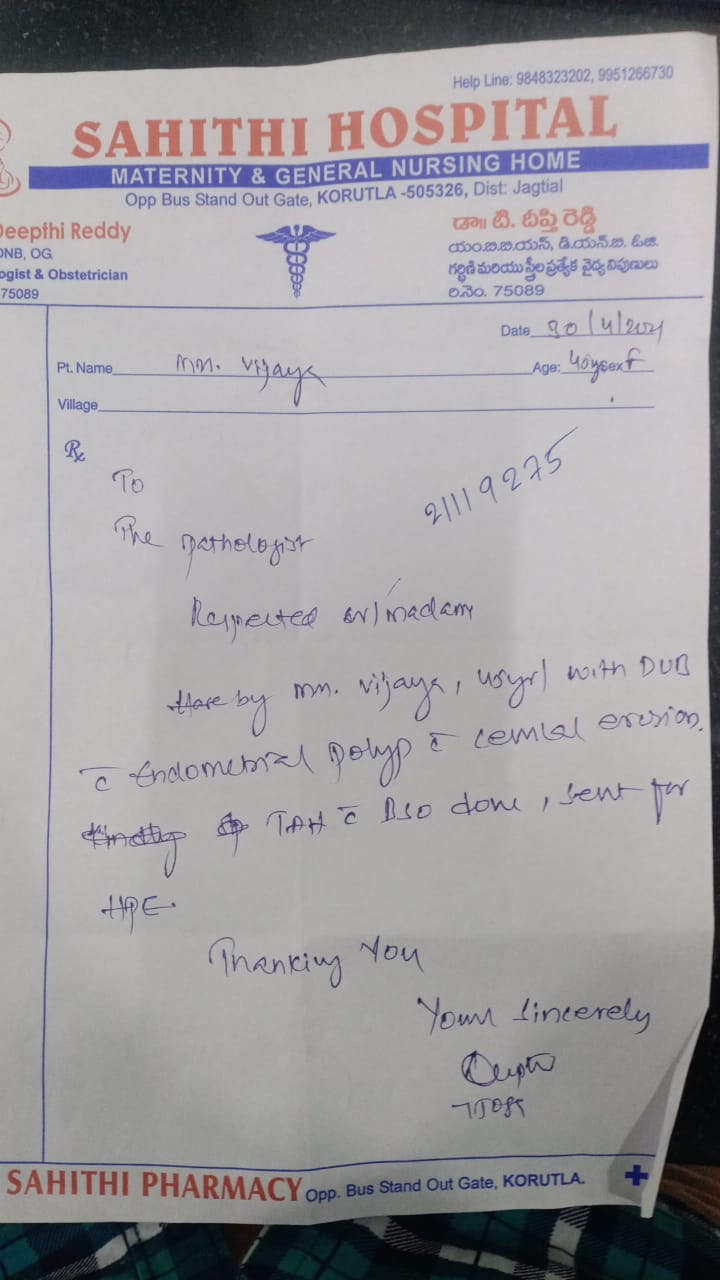 Help Line: 9848323202, 9951266730
SAHITHI HOSPITAL
MATERNITY & GENERAL NURSING HOME
Opp Bus Stand Out Gate, KORUTLA -505326, Dist: Jagtial
Deepthi Reddy
DNB, OG
ogist & Obstetrician
75089
డా॥ టి. దీప్తి రెడ్డి
యం.బి.బి.యస్, డి.యన్.బి. ఓ.జి.
గర్భిణి మరియు స్త్రీల ప్రత్యేక వైద్య నిపుణులు
రి.నెం. 75089
Date 30/4/2021
Pt. Name Mrs. Vijaya Age: Sex F
Village
Rx
To
The pathologist
21119275
Respected sir/madam
by Mrs. Vijaya, 45yr/ with DUB
c̄ Endometrial polyp c̄ cervical erosion.
TAH c̄ BSO done, sent for
HPE.
Thanking You
Yours sincerely
75089
SAHITHI PHARMACY Opp. Bus Stand Out Gate, KORUTLA.